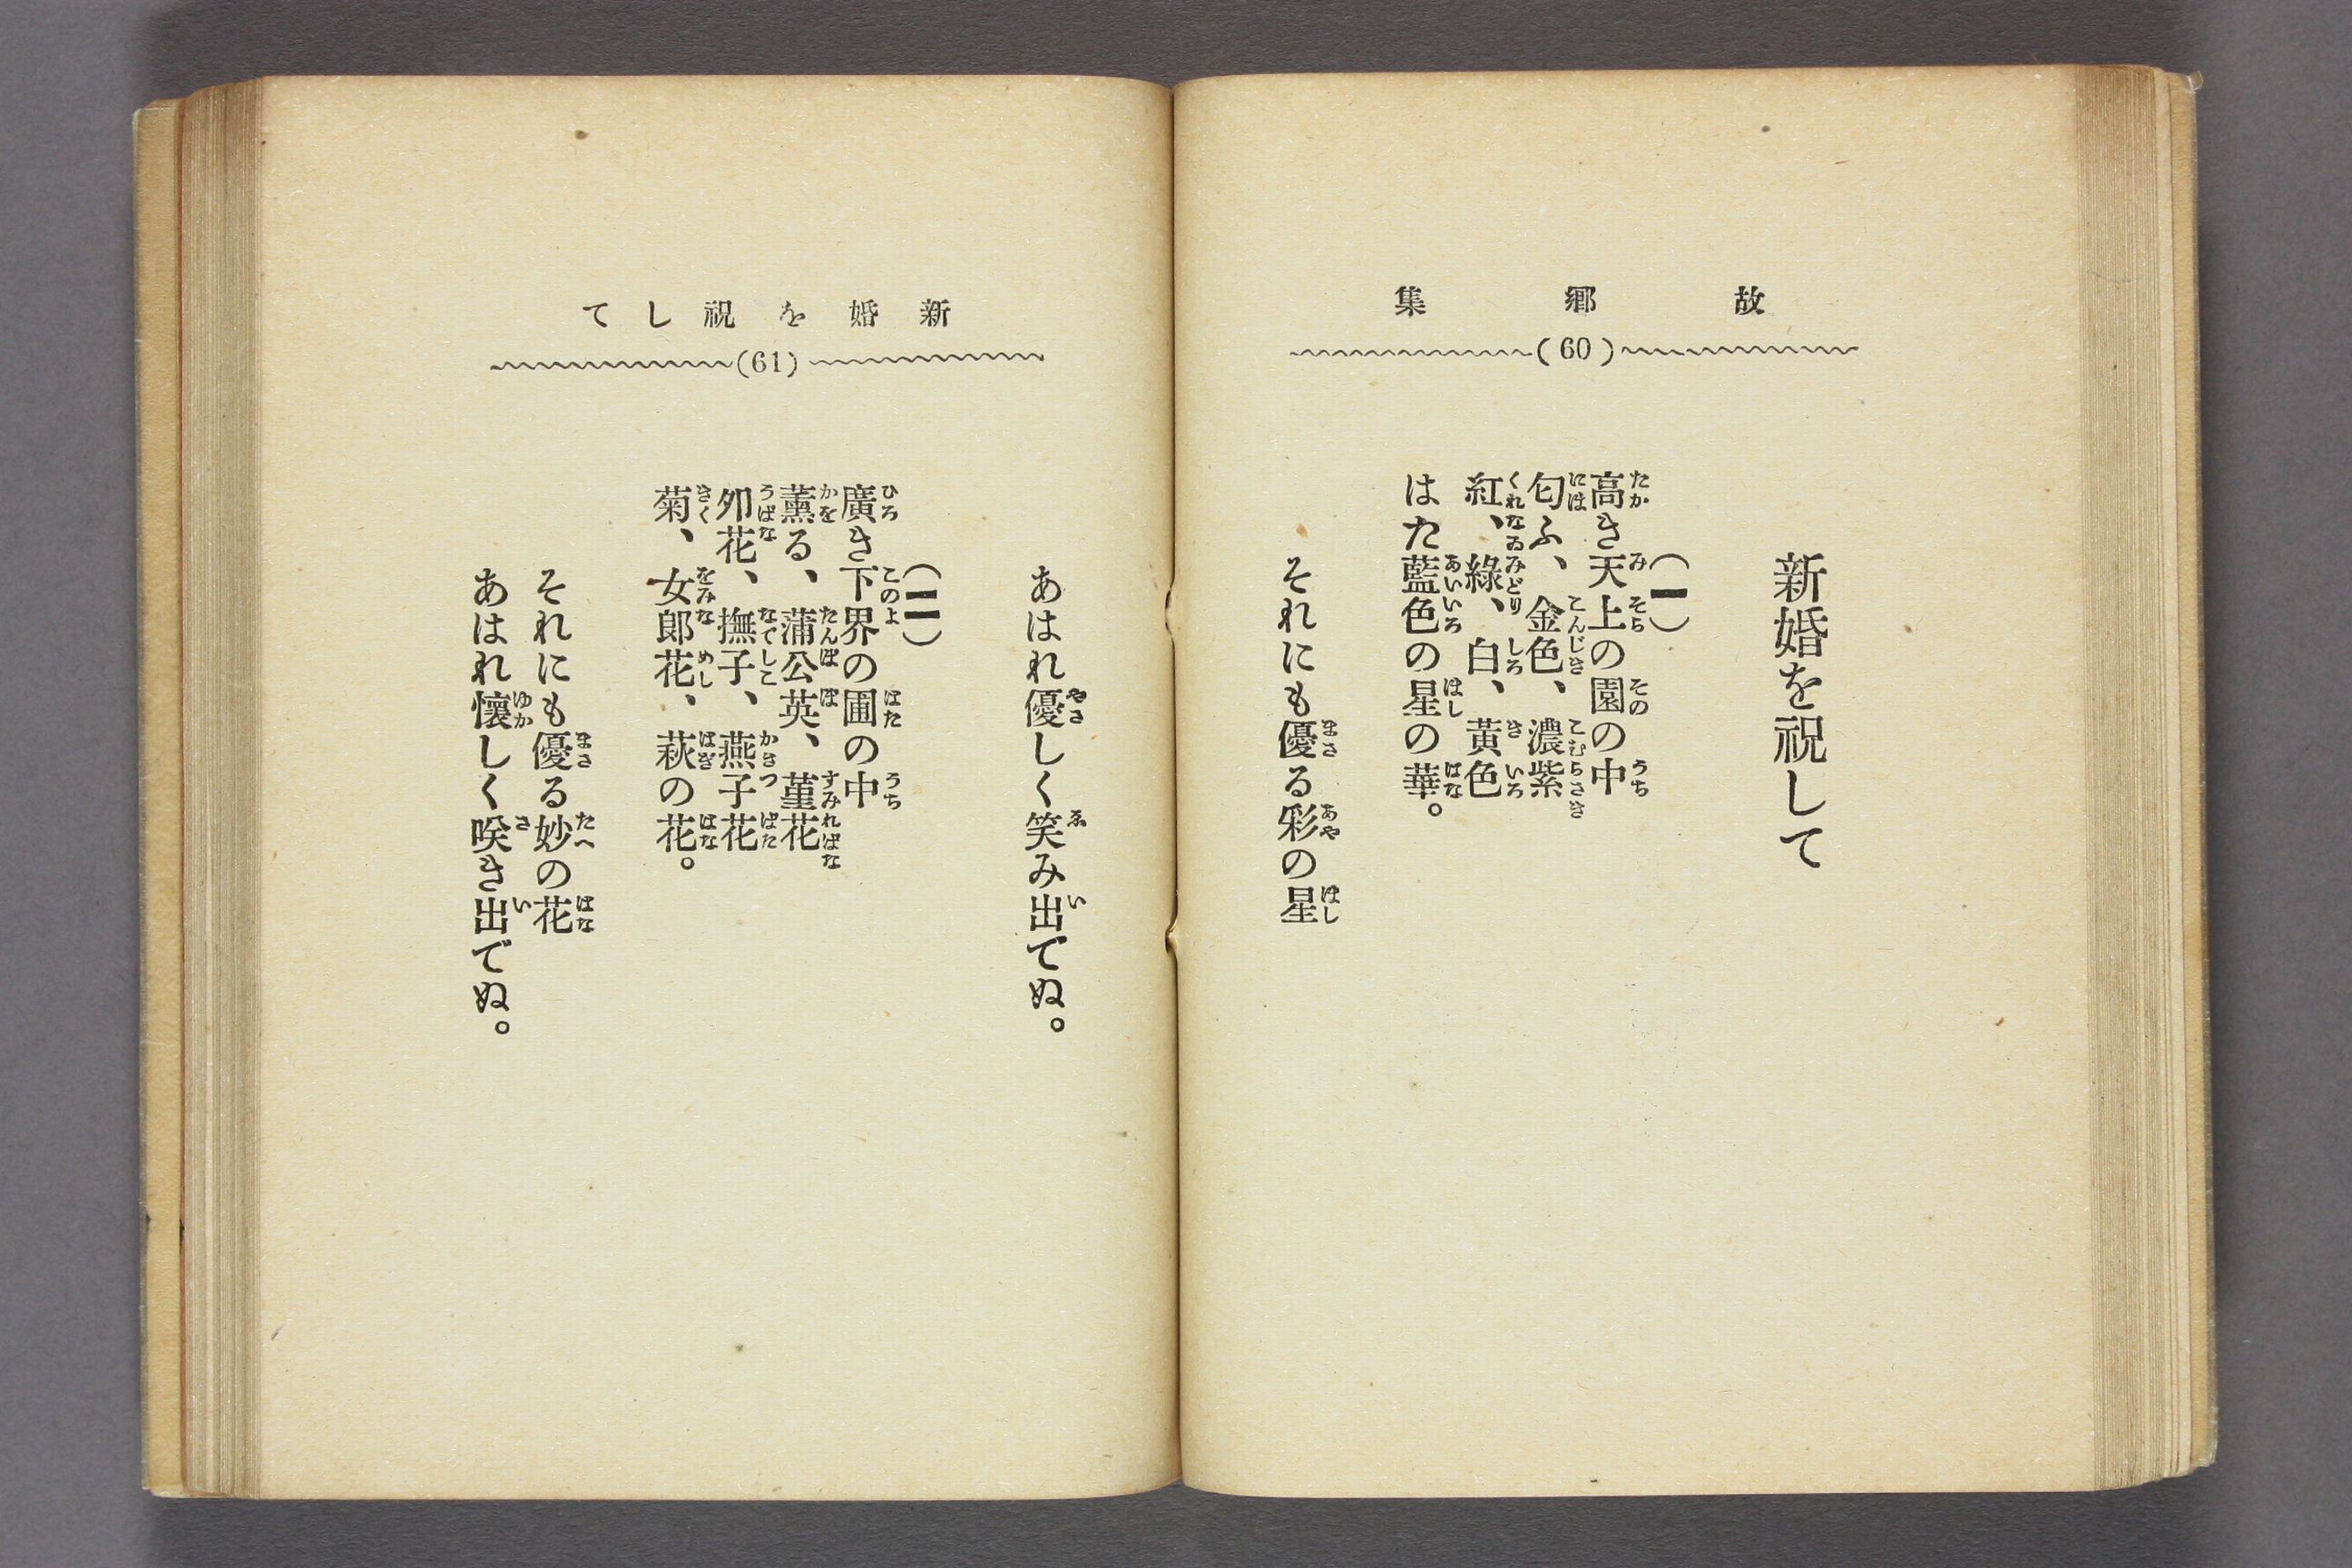 故郷集
(60)
新婚を祝して
(一)
高き天上の園の中
匂ふ、金色、濃紫
紅、綠、白、黃色
はた藍色の星の華。
それにも優る彩の星
新婚を祝して
(61)
あはれ優しく笑み出でぬ。
(二)
廣き下界の圃の中
薰る、蒲公英、菫花
夘花、撫子、燕子花
菊、女郞花、萩の花。
それにも優る妙の花
あはれ懷しく咲き出でぬ。